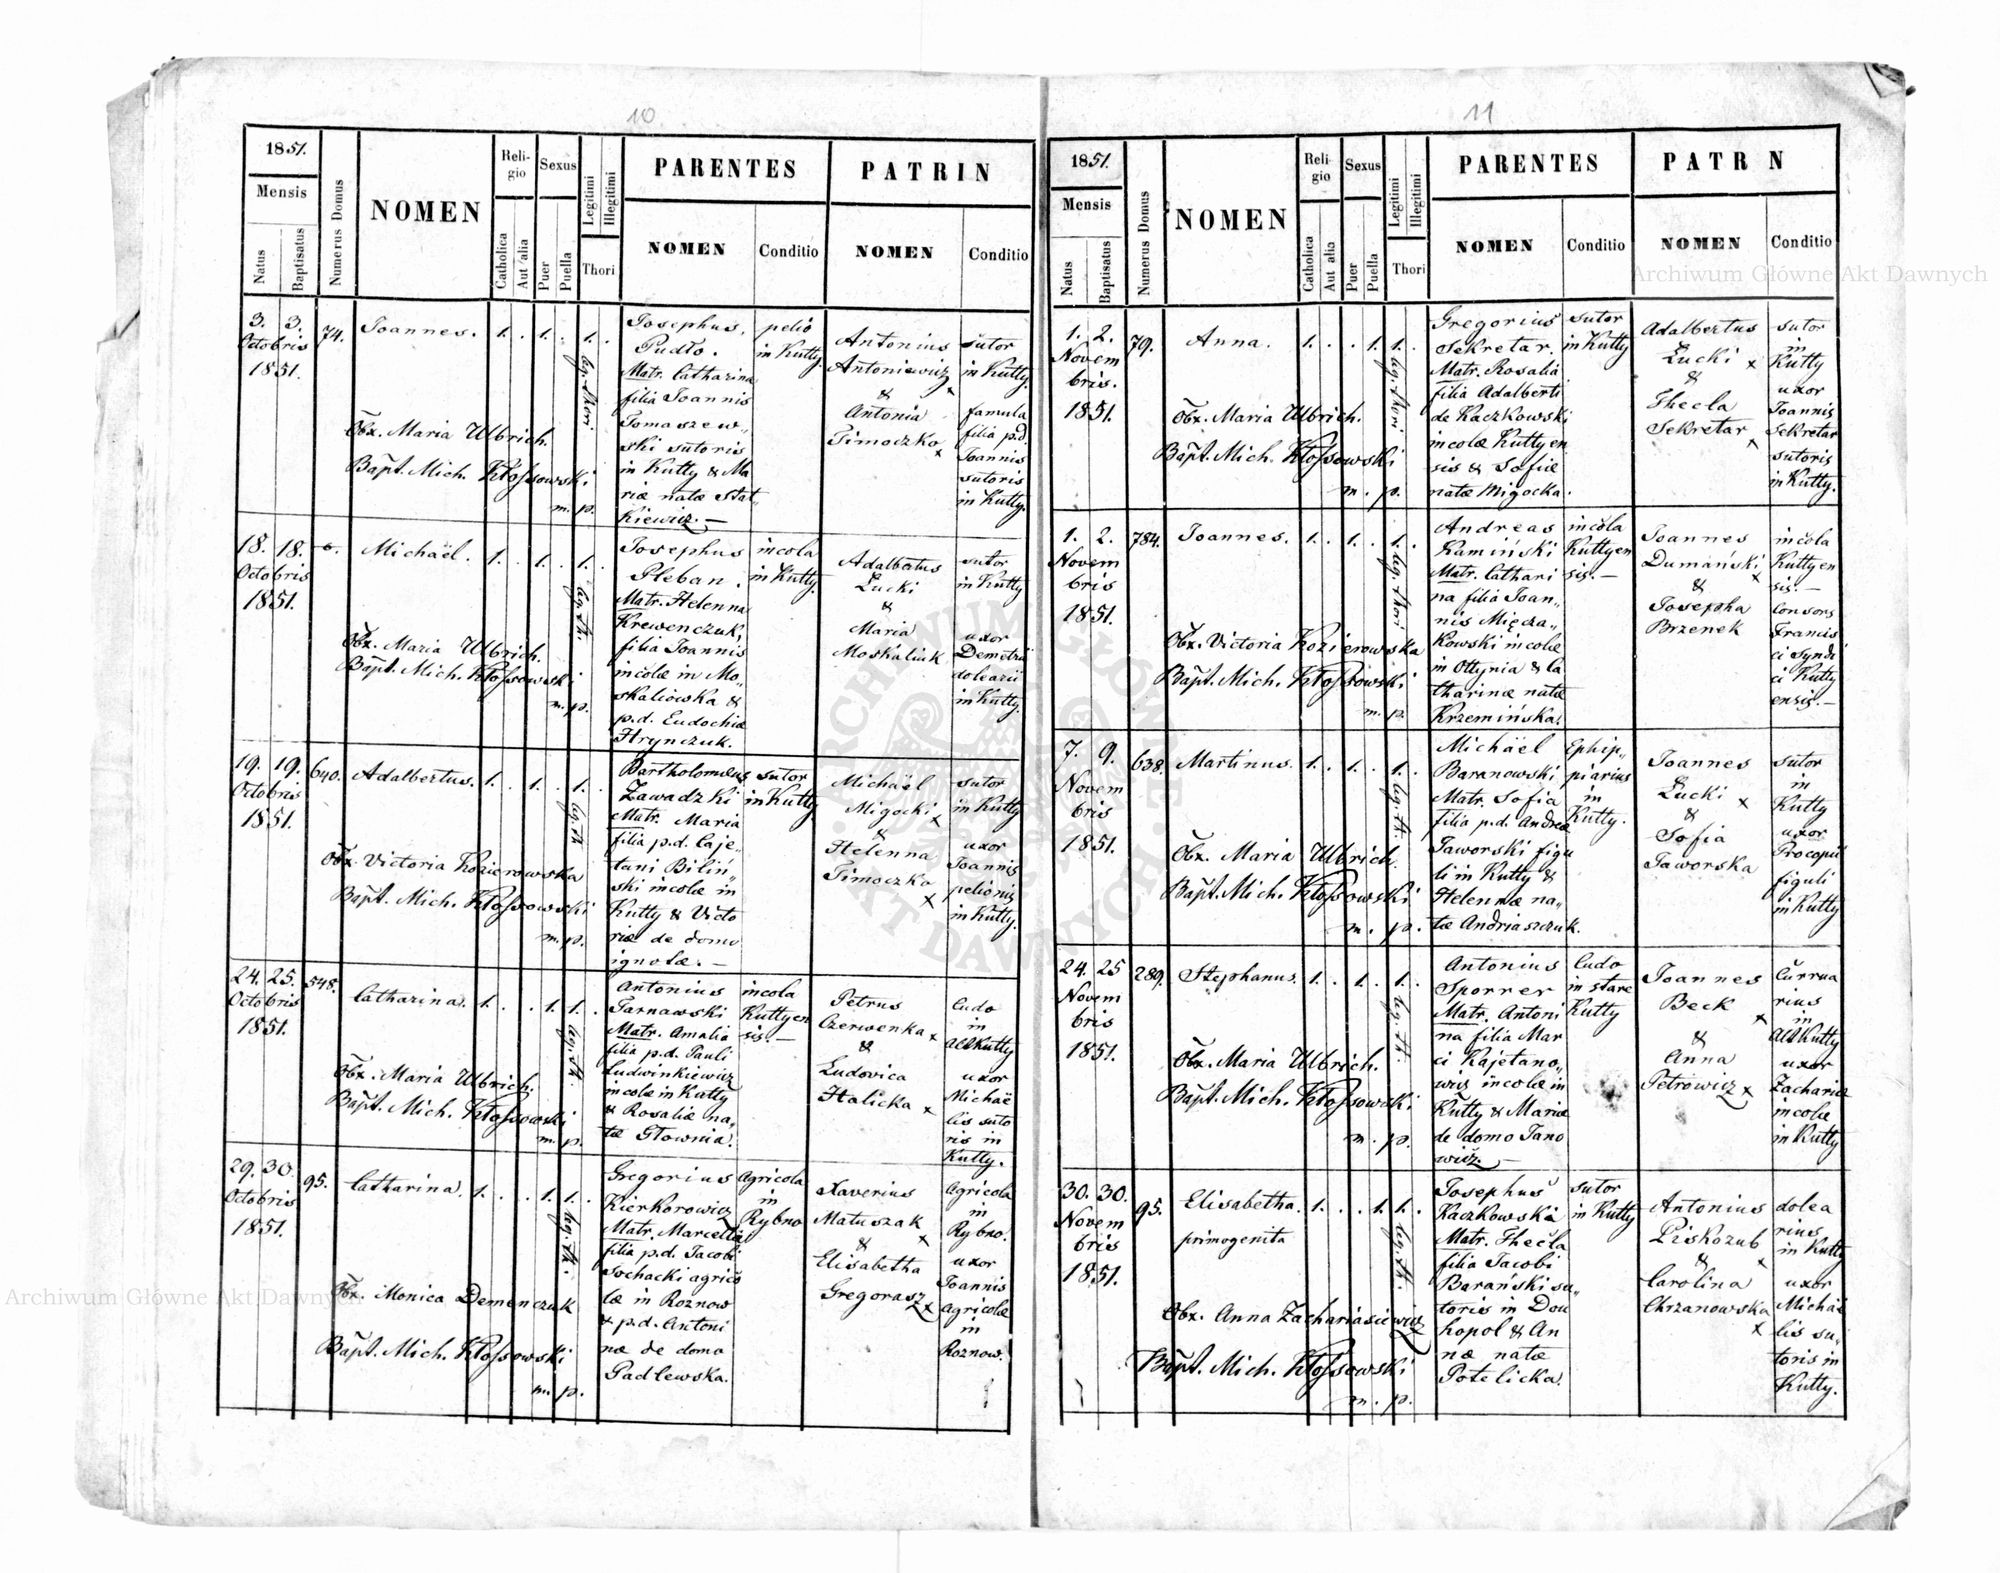 10
1851.
Mensis
Natus
Baptisatus
Numerus Domus
NOMEN
Religio
Catholica
Aut alia
Sexus
Puer
Puella
Legitimi
Illegitimi
Thori
PARENTES
NOMEN
Conditio
PATRIN
NOMEN
Conditio
3. 3.
Octobris
1851.
74.
Joannes.
1. . 1. . 1. .
leg. thori
Obx. Maria Ulbrich.
Bapt. Mich. Kłossowski
m. p.
Josephus.
Pudło.
Matr. Catharina
filia Joannis
Tomaszew„
ski sutoris
in Kutty & Ma
riæ natæ Stat„
kiewicz. —
pelio
in Kutty.
Antonius
Antoniewicz x
&
Antonia
Timoczko x
sutor
in Kutty.
famula
filia p.d.
Joannis
sutoris
in Kutty.
18. 18.
Octobris
1851.
Michaël.
1. . 1. . 1. .
leg. th.
Obx. Maria Ulbrich.
Bapt. Mich. Kłossowski
m. p.
Josephus
Pleban.
Matr. Helenna
Krewenczuk,
filia Joannis
incolæ in Mo„
skaliowka &
p.d. Eudochiæ
Hrynczuk.
incola
in Kutty.
Adalbertus
Łucki
&
Maria
Moskaliuk
sutor
in Kutty
uxor
Demetrii
dolearii
in Kutty.
19. 19.
Octobris
1851.
640.
Adalbertus.
1. . 1. . 1. .
leg. th
Obx. Victoria Kozierowska
Bapt. Mich. Kłossowski
m. p.
Bartholomæus
Zawadzki
Matr. Maria
filia p.d. Caje„
tani Biliń„
ski incolæ in
Kutty & Victo
riæ de domo
ignotæ. —
sutor
in Kutty
Michaël
Migocki x
&
Helenna
Timoczko x
sutor
in Kutty
uxor
Joannis
pelionis
in Kutty.
24. 25.
Octobris
1851.
548.
Catharina.
1. . . 1. 1. .
leg. th.
Obx. Maria Ulbrich.
Bapt. Mich. Kłossowski
m. p.
Antonius
Tarnawski
Matr. Amalia
filia p.d. Pauli
Ludwinkiewicz
incolæ in Kutty
& Rosaliæ na„
tæ Głownia.
incola
Kuttyen
sis. —
Petrus
Czerwenka x
&
Ludovica
Halicka x
Cudo
in
AltKutty
uxor
Michaë
lis suto
ris in
Kutty.
29. 30.
Octobris
1851.
95.
Catharina.
1. . . 1. 1. .
leg. th.
Obx. Monica Demenczuk
Bapt. Mich. Kłossowski
m. p.
Gregorius
Kierkorowicz
Matr. Marcella
filia p.d. Jacobi
Sochacki agrico
læ in Roznow
& p.d. Antoni
næ de domo
Padlewska.
Agricola
in
Rybno
Xaverius
Matuszak x
&
Elisabetha
Gregorasz x
Agricola
in
Rybno.
uxor
Joannis
agricolæ
in
Roznow.
11
1851.
Mensis
Natus
Baptisatus
Numerus Domus
NOMEN
Religio
Catholica
Aut alia
Sexus
Puer
Puella
Legitimi
Illegitimi
Thori
PARENTES
NOMEN
Conditio
PATR N
NOMEN
Conditio
1. 2.
Novem
bris.
1851.
79.
Anna.
1. . . 1. 1. .
leg. thori
Obx. Maria Ulbrich.
Bapt. Mich. Kłossowski
m. p.
Gregorius
Sekretar.
Matr. Rosalia
filia Adalberti
de Kaczkowski
incolæ Kuttyen
sis & Sofiæ
natæ Migocka.
sutor
in Kutty
Adalbertus
Łucki x
&
Thecla
Sekretar x
sutor
in
Kutty
uxor
Joannis
Sekretar
sutoris
in Kutty.
1. 2.
Novem
bris
1851.
784.
Joannes.
1. . 1. . 1. .
leg. thori
Obx. Victoria Kozierowska
Bapt. Mich. Kłossowski
m. p.
Andreas
Kamiński
Matr. Cathari
na filia Joan„
nis Mięcza„
kowski incolæ
in Ottynia & Ca
tharinæ natæ
Krzemińska.
incola
Kuttyen
sis. —
Joannes
Dumański x
&
Josepha
Brzenek
incola
Kuttyen
sis. —
Consors
Francis
ci Syndi
ci Kutty
ensis. —
7. 9.
Novem
bris
1851.
638.
Martinus.
1. . 1. . 1. .
leg. th.
Obx. Maria Ulbrich.
Bapt. Mich. Kłossowski
m. p.
Michaël
Baranowski
Matr. Sofia
filia p.d. Andreæ
Jaworski figu
li in Kutty &
Helennæ na„
tæ Andriaszczuk.
Ephip„
piarius
in
Kutty.
Joannes
Łucki x
&
Sofia
Jaworska
Sutor
in
Kutty
uxor
Procopii
figuli
in Kutty
24. 25
Novem
bris
1851.
289.
Stephanus.
1. . 1. . 1. .
leg. th.
Obx. Maria Ulbrich.
Bapt. Mich. Kłossowski
m. p.
Antonius
Sporrer
Matr. Antoni
na filia Mar
ci Kajetano„
wicz incolæ in
Kutty & Mariæ
de domo Jano
wicz. —
Cudo
in stare
Kutty
Joannes
Beck x
&
Anna
Petrowicz x
Currua
rius
in
AltKutty
uxor
Zachariæ
incolæ
in Kutty
30. 30.
Novem
bris
1851.
95.
Elisabetha.
primogenita
1. . . 1. 1. .
leg. th.
Obx. Anna Zachariasiewicz
Bapt. Mich. Kłossowski
m. p.
Josephus
Kaczkowski
Matr. Thecla
filia Jacobi
Barański su„
toris in Dou
hopol & An
næ natæ
Potelicka.
sutor
in Kutty
Antonius
Piskozub x
&
Carolina
Chrzanowska x
dolea
rius
in Kutty
uxor
Michaë
lis su„
toris in
Kutty.
Archiwum Główne Akt Dawnych
Archiwum Główne Akt Dawnych
ARCHIWUM GŁÓWNE AKT DAWNYCH